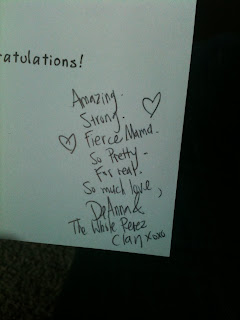 ratulations!
Amazing.
Strong.
Fierce Mama.
So Pretty.
For real.
So much love,
DeAnna &
The Whole Perez
Clan xoxo